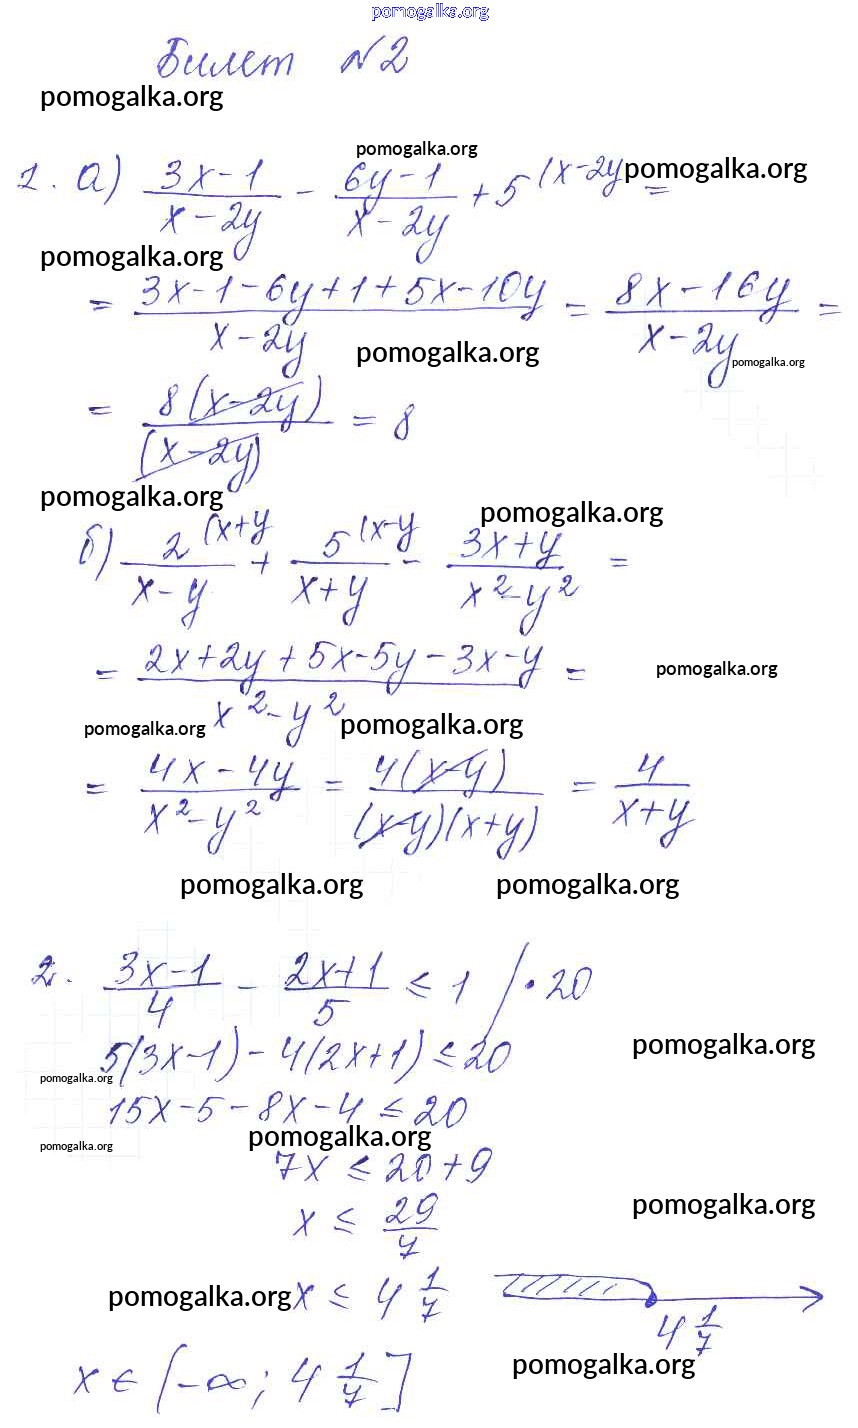 pomogalka.org
Билет №2
pomogalka.org
pomogalka.org
1. а) (3x-1)/(x-2y) - (6y-1)/(x-2y) + 5^(x-2y = pomogalka.org
pomogalka.org
= (3x-1-6y+1+5x-10y)/(x-2y) = (8x-16y)/(x-2y) =
pomogalka.org pomogalka.org
= 8(x-2y)/(x-2y) = 8
pomogalka.org pomogalka.org
б) 2^(x+y/(x-y) + 5^(x-y/(x+y) - (3x+y)/(x²-y²) =
= (2x+2y+5x-5y-3x-y)/(x²-y²) = pomogalka.org
pomogalka.org pomogalka.org
= (4x-4y)/(x²-y²) = 4(x-y)/(x-y)(x+y) = 4/(x+y)
pomogalka.org pomogalka.org
2. (3x-1)/4 - (2x+1)/5 ≤ 1 / · 20
5(3x-1) - 4(2x+1) ≤ 20 pomogalka.org
pomogalka.org
15x-5-8x-4 ≤ 20
pomogalka.org pomogalka.org
7x ≤ 20+9
x ≤ 29/7 pomogalka.org
pomogalka.org x ≤ 4 1/7
4 1/7
x ∈ (-∞; 4 1/7] pomogalka.org